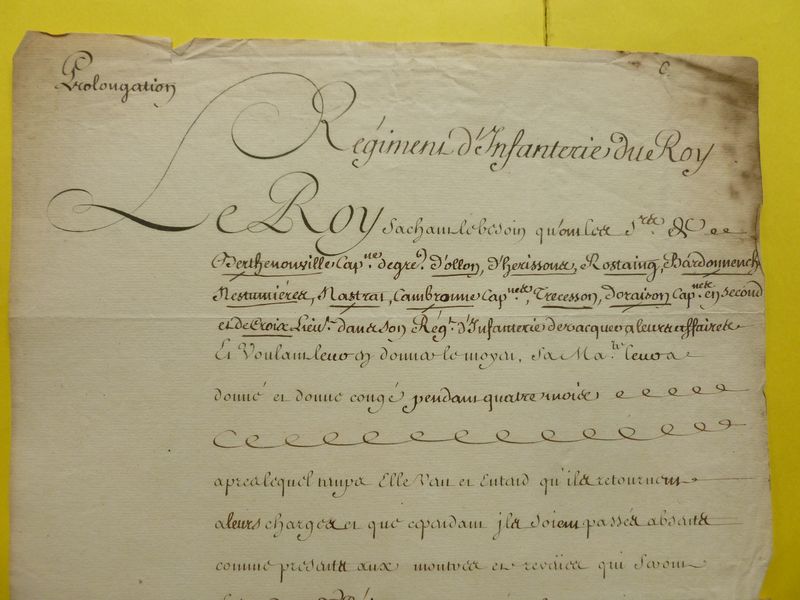 C.
Prolongation
Régiment d'Infanterie du Roy
Le Roy sachant le besoin qu'ont les Srs. de
Berthenonville Capne. de gre. d'ollon, d'herissons, Rostaing, Bardonnench
Nestumiéres, Nastrat, Cambronne Capnes., Trecesson, doraison Capnes. en second
et de Croix Lieut. dans son Régt. d'Infanterie de vacquer a leurs affaires
Et Voulant leur en donner le moyen, Sa Maté. leur a
donné et donne congé pendant quatre mois
apres lequel temps Elle Veut et Entend qu'ils retournent
a leurs charges et que cependant ils soient passés absents
comme presents aux montres et reveües qui seront